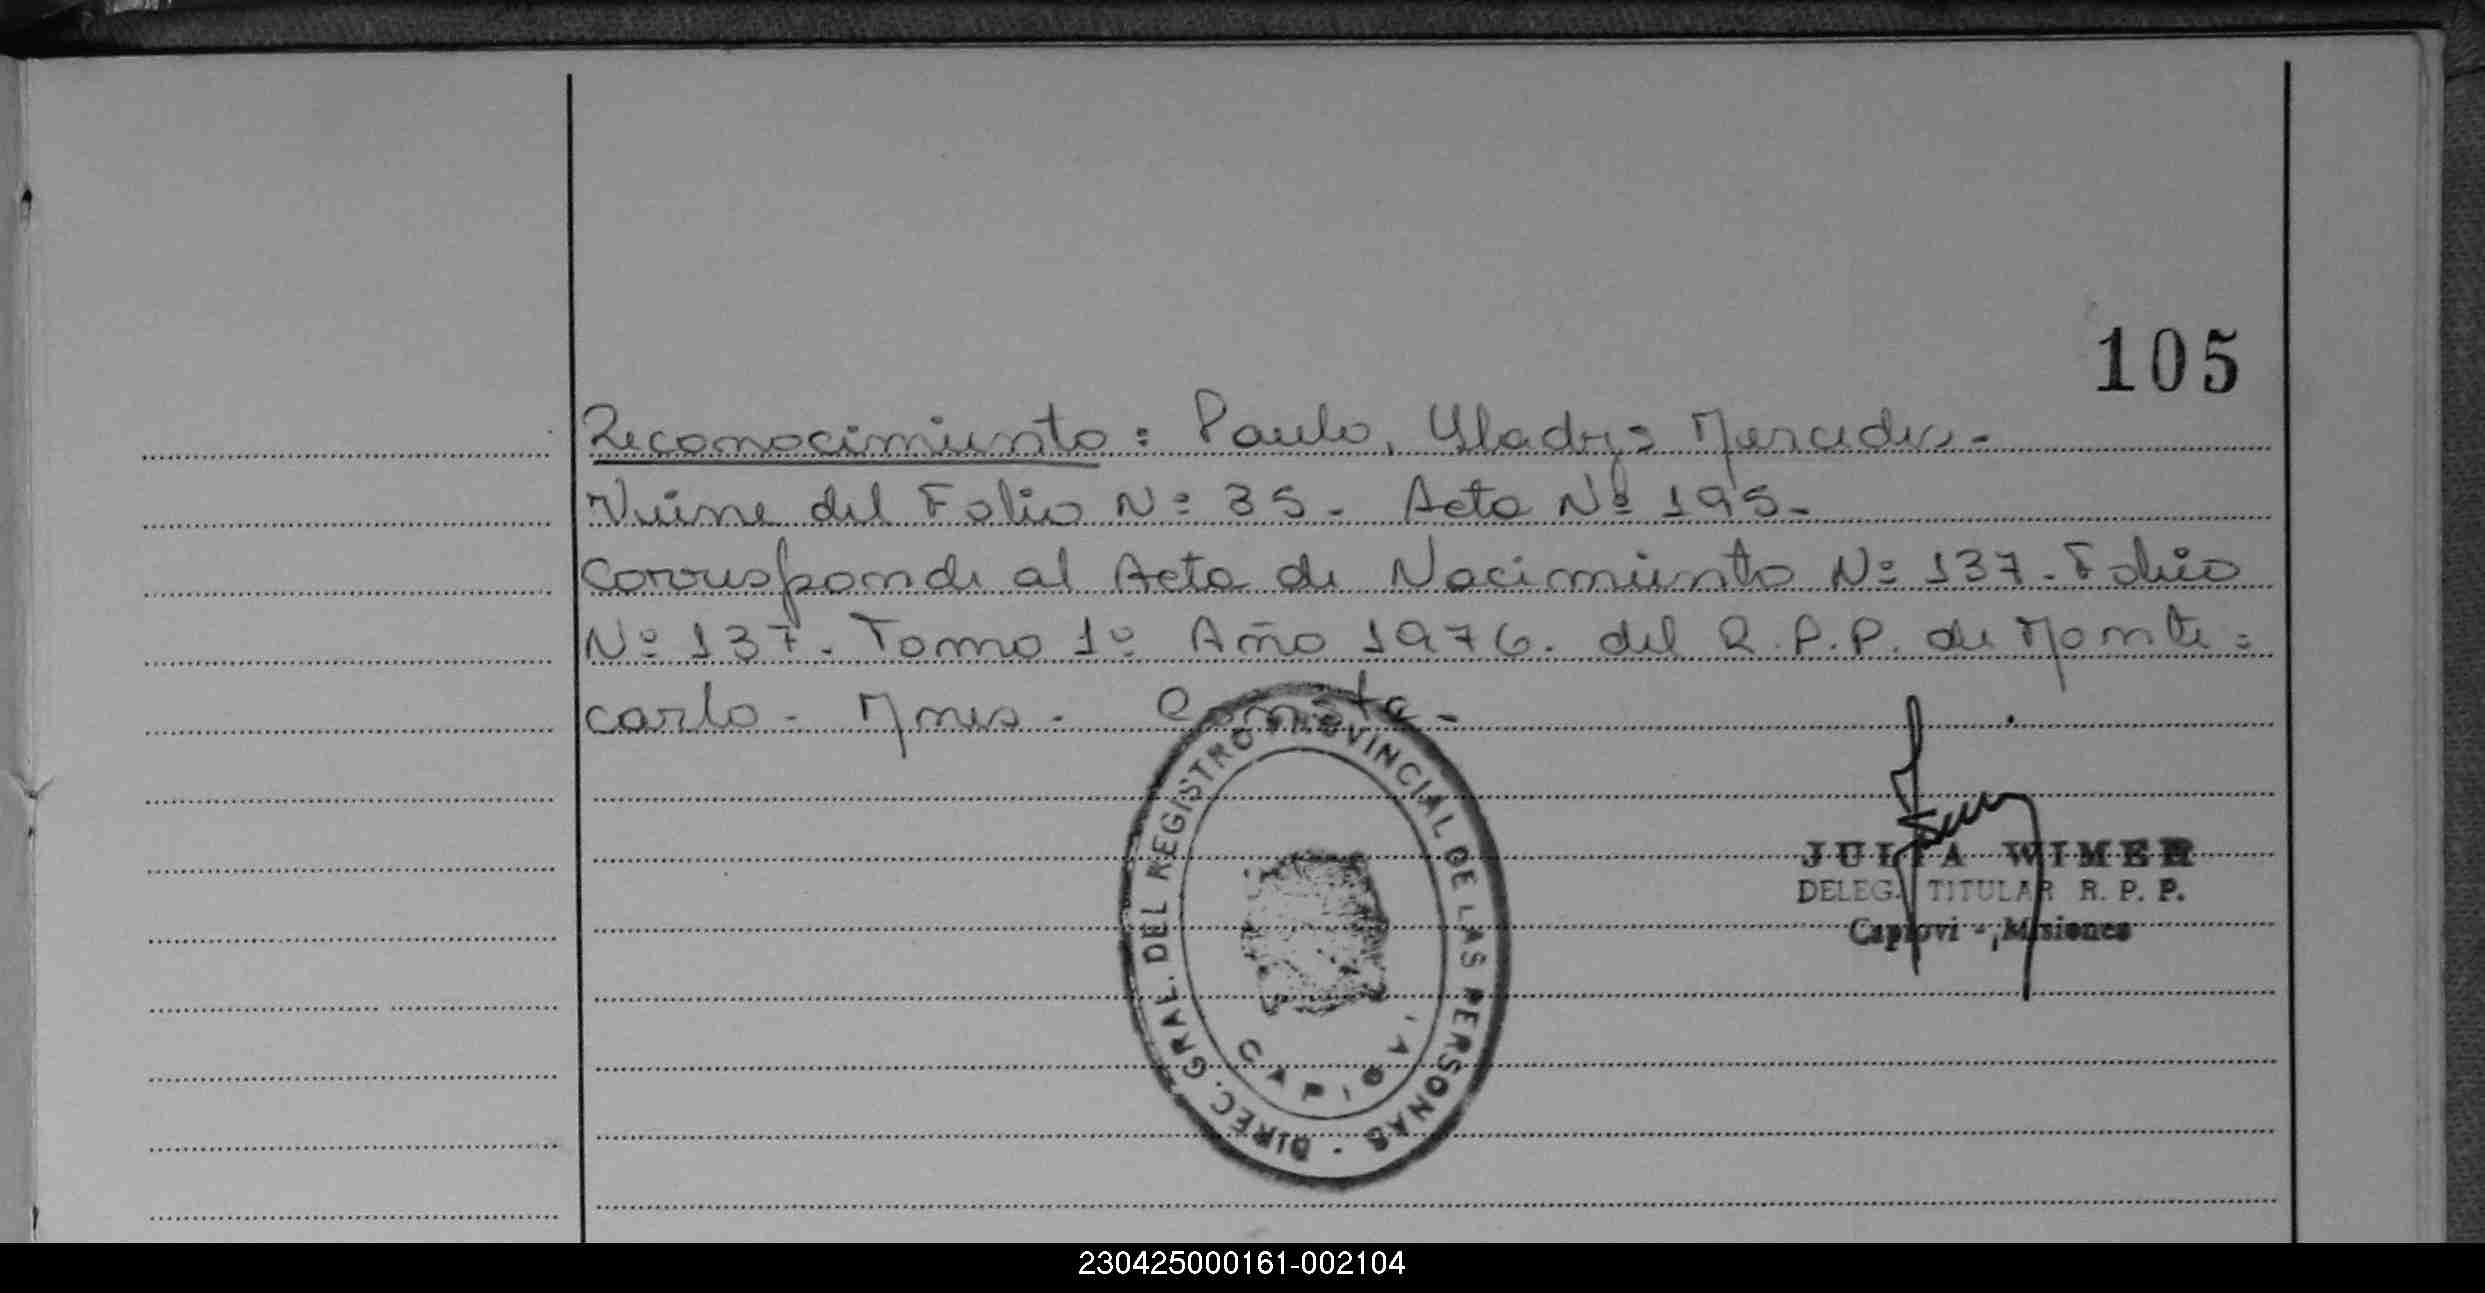 105
Reconocimiento: Paulo, Gladys Mercedes.-
Viene del Folio Nº 35.- Acta Nº 195.-
Corresponde al Acta de Nacimiento Nº 137.- Folio
Nº 137.- Tomo 1º Año 1976. del R.P.P. de Monte=
carlo.- Mnes.- Consta.-
DIREC. GRAL. DEL REGISTRO PROVINCIAL DE LAS PERSONAS
JULIA WIMER
DELEG. TITULAR R. P. P.
Capiovi - Misiones
230425000161-002104